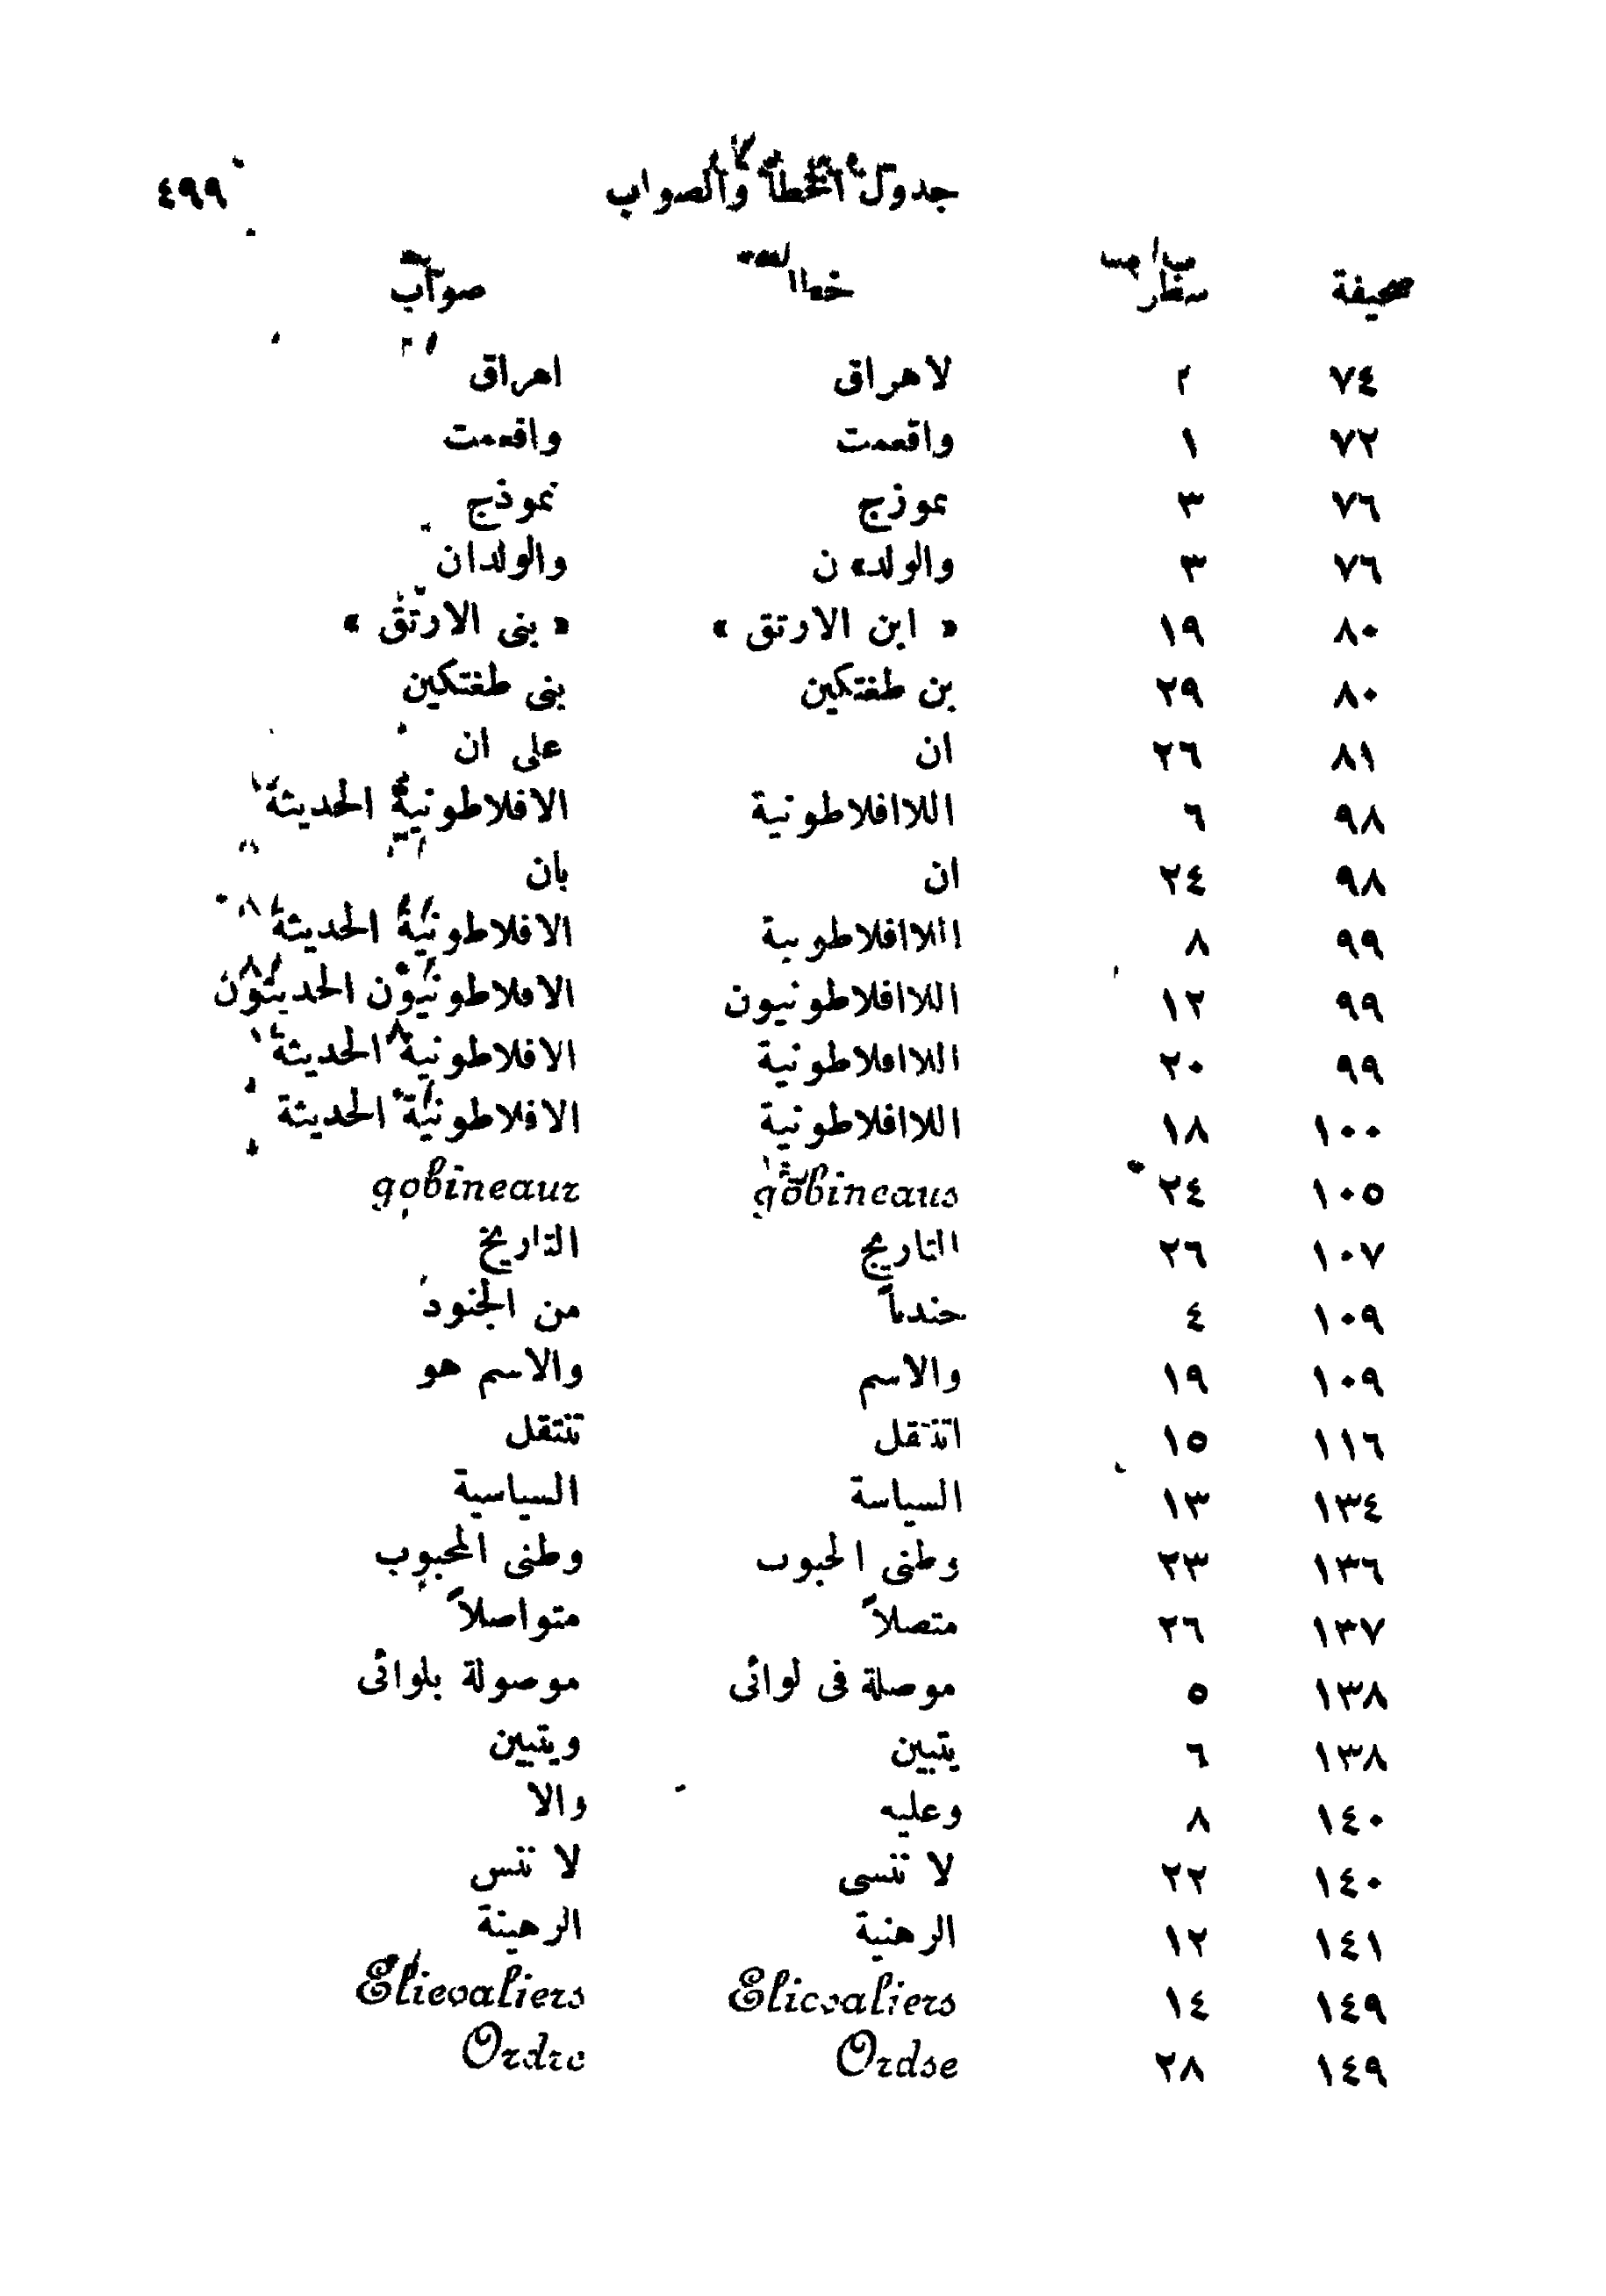 جدول الخطأ والصواب ٤٩٩
صحيفة سطر خطا صواب
٧٤ ٢ لاهراق اهراق
٧٢ ١ واقعمت واقعمت
٧٦ ٣ نموزج نموذج
٧٦ ٣ والولدء ن والولدان
٨٠ ١٩ « ابن الارتق » « بنى الارتق »
٨٠ ٢٩ بن طغتكين بنى طغتكين
٨١ ٢٦ ان على ان
٩٨ ٦ اللاافلاطونية الافلاطونية الحديثة
٩٨ ٢٤ ان بان
٩٩ ٨ اللاافلاطونية الافلاطونية الحديثة
٩٩ ١٢ اللاافلاطونيون الافلاطونيون الحديثون
٩٩ ٢٠ اللاافلاطونية الافلاطونية الحديثة
١٠٠ ١٨ اللاافلاطونية الافلاطونية الحديثة
١٠٥ ٢٤ gobineaus gobineaur
١٠٧ ٢٦ التاريج التاريخ
١٠٩ ٤ جندياً من الجنود
١٠٩ ١٩ والاسم والاسم هو
١١٦ ١٥ اتنقل تنتقل
١٣٤ ١٣ السياسة السياسية
١٣٦ ٢٣ وطنى الحبوب وطنى المحبوب
١٣٧ ٢٦ متصلاً متواصلاً
١٣٨ ٥ موصلة فى لوائى موصولة بلوائى
١٣٨ ٦ يتبين ويتبين
١٤٠ ٨ وعليه والا
١٤٠ ٢٢ لا تنسى لا تنس
١٤١ ١٢ الرهنية الرهينة
١٤٩ ١٤ Elicvaliers Elievaliers
١٤٩ ٢٨ Ordse Ordre